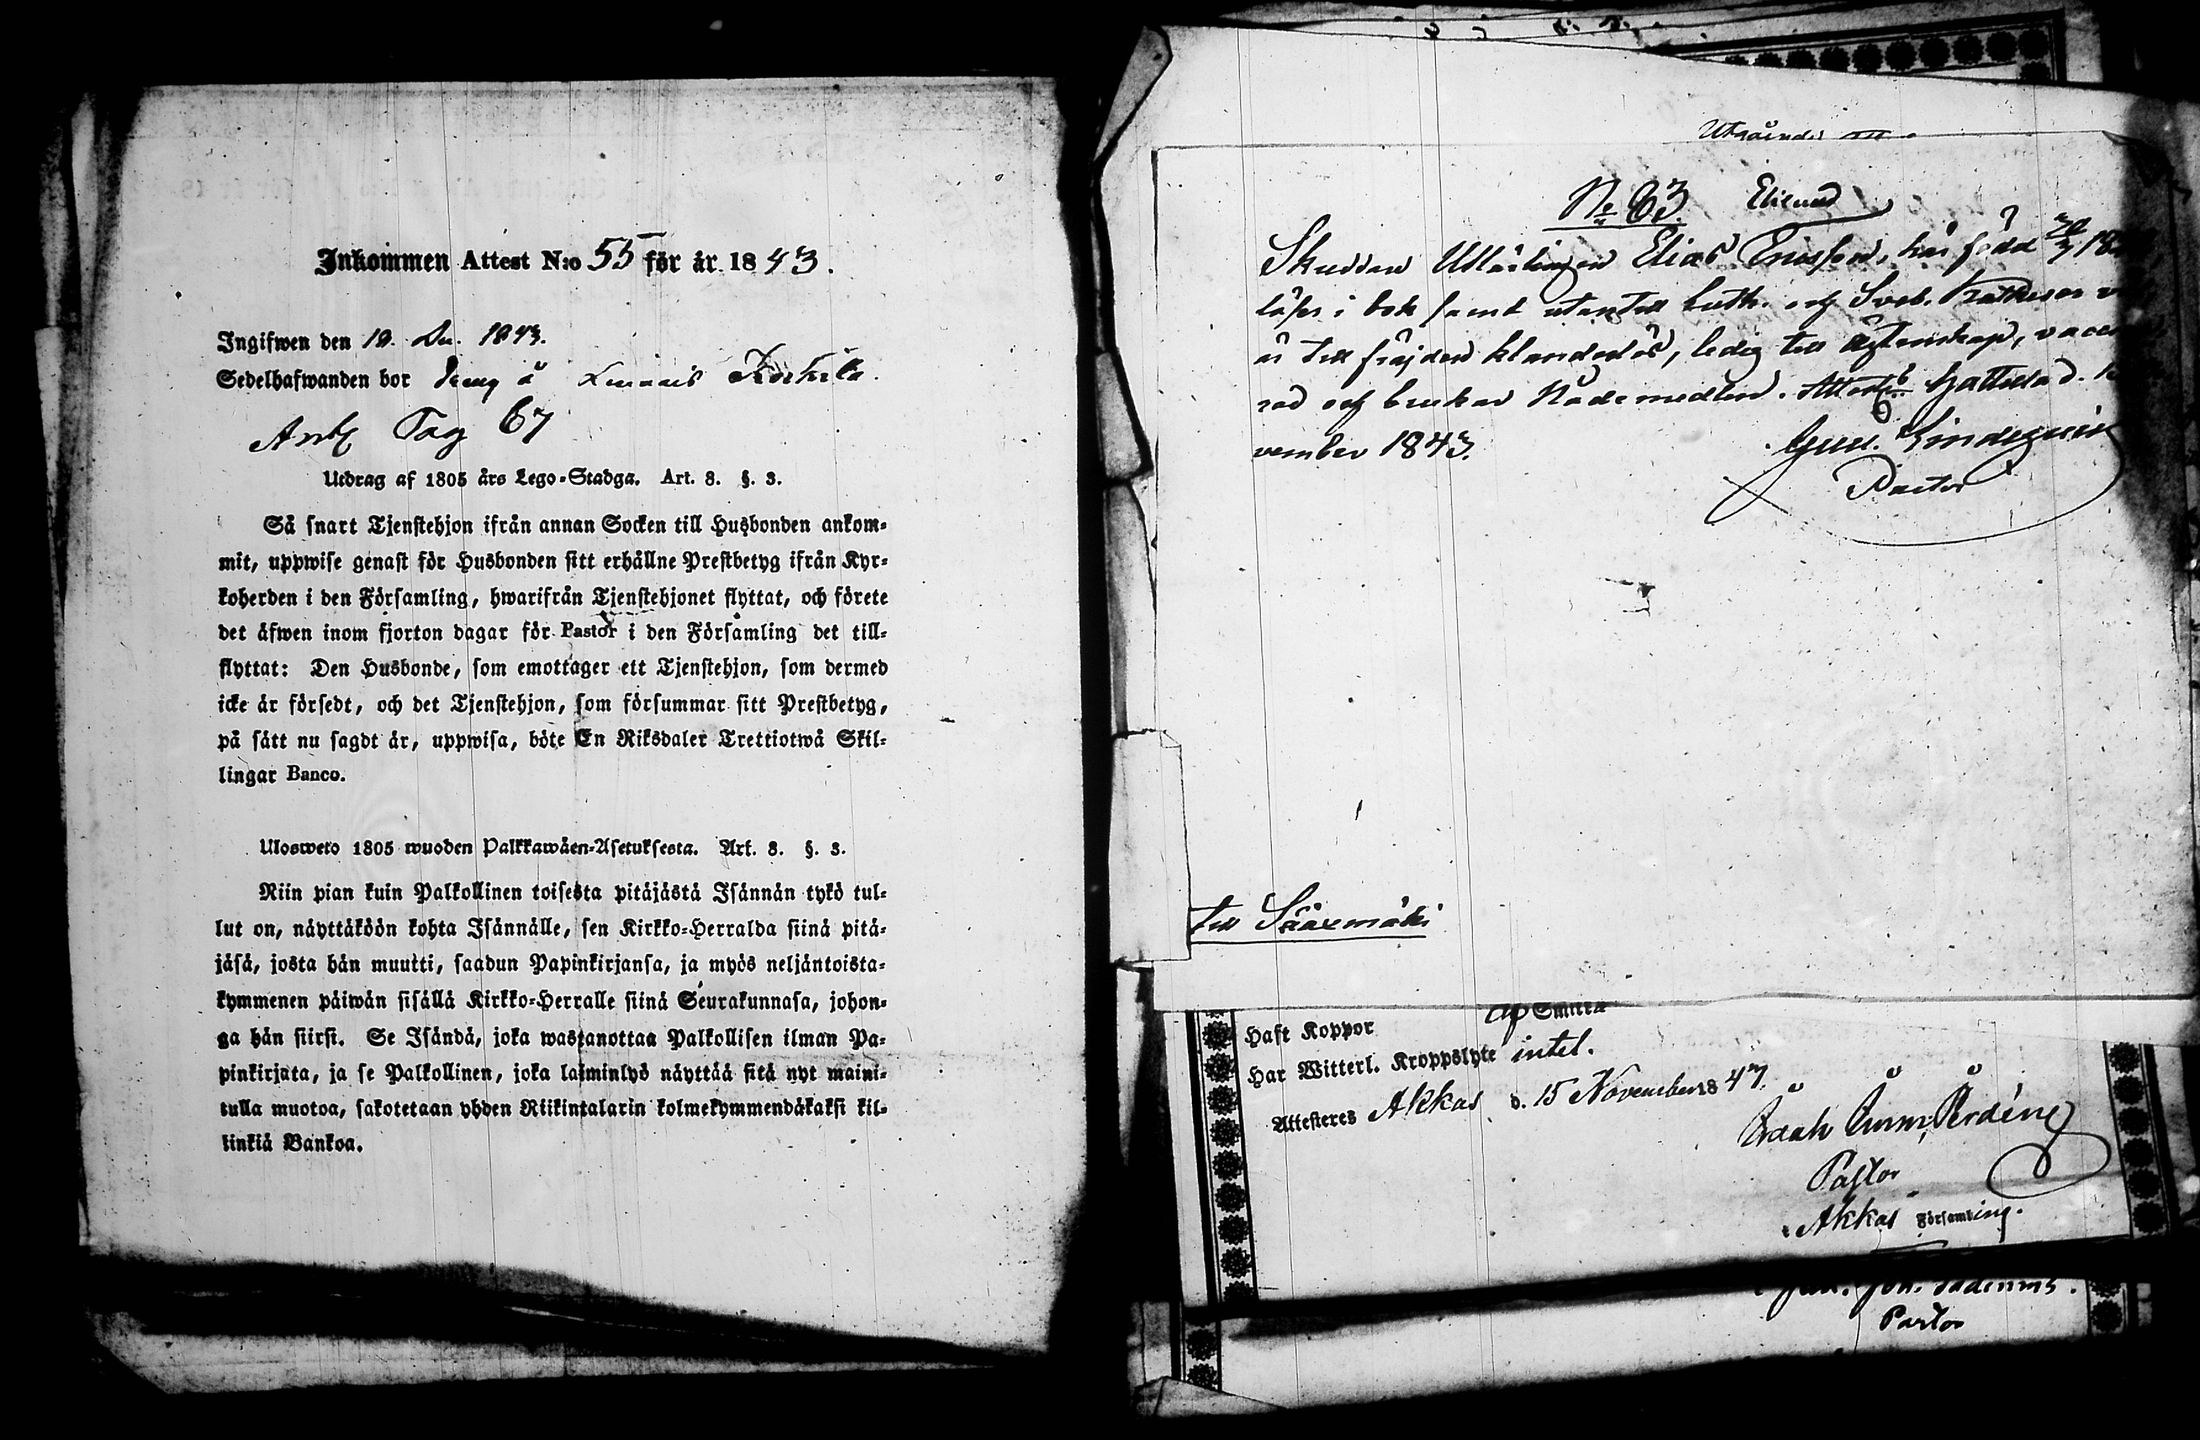 Inkommen Attest N:o 55 för år 1843.
Ingifwen den 19. Dec. 1843.
Sedelhafwanden bor dräng å Kurhila.
Ant. Pag 67
Utdrag af 1805 års Lego-Stadga. Art. 8. §. 3.
Så snart Tjenstehjon ifrån annan Socken till Husbonden ankom-
mit, uppwise genast för Husbonden sitt erhållne Prestbetyg ifrån Kyr-
koherden i den Församling, hwarifrån Tjenstehjonet flyttat, och förete
det äfwen inom fjorton dagar för Pastor i den Församling det till-
flyttat: Den Husbonde, som emottager ett Tjenstehjon, som dermed
icke är försedt, och det Tjenstehjon, som försummar sitt Prestbetyg,
på sätt nu sagdt är, uppwisa, böte En Riksdaler Trettiotwå Skil-
lingar Banco.
Ulosweto 1805 wuoden Palkkawäen-Asetuksesta. Art. 8. §. 3.
Niin pian kuin Palkollinen toisesta pitäjästä Isännän tykö tul-
lut on, näyttäköön kohta Isännälle, sen Kirkko-Herralda siinä pitä-
jäsä, josta hän muutti, saadun Papinkirjansa, ja myös neljäntoista-
kymmenen päiwän sisällä Kirkko-Herralle siinä Seurakunnasa, johon-
ga hän siirsi. Se Isändä, joka wastanottaa Palkollisen ilman Pa-
pinkirjata, ja se Palkollinen, joka laiminlyö näyttää sitä nyt maini-
tulla muotoa, sakotetaan yhden Riikintalarin kolmekymmendäkaksi kil-
linkiä Bankoa.
Utgående
No 63.
Skuddan Utlärlingen Elias Enosson, här född 20/3 18
läser i bok samt utantill Luth. och Sveb. Katheser
är till fräjden klanderlös, ledig till Äktenskap, vacci
rad och brukar Nådemedlen. Attest. Hattula d.
vember 1843.
Pastor
till Sääxmäki
af Smitta
Haft Koppor
Har Witterl. Kroppslyte intet.
Attesteres Akkas d. 15 November 1847.
Pastor
i Akkas Församling.
Pastor